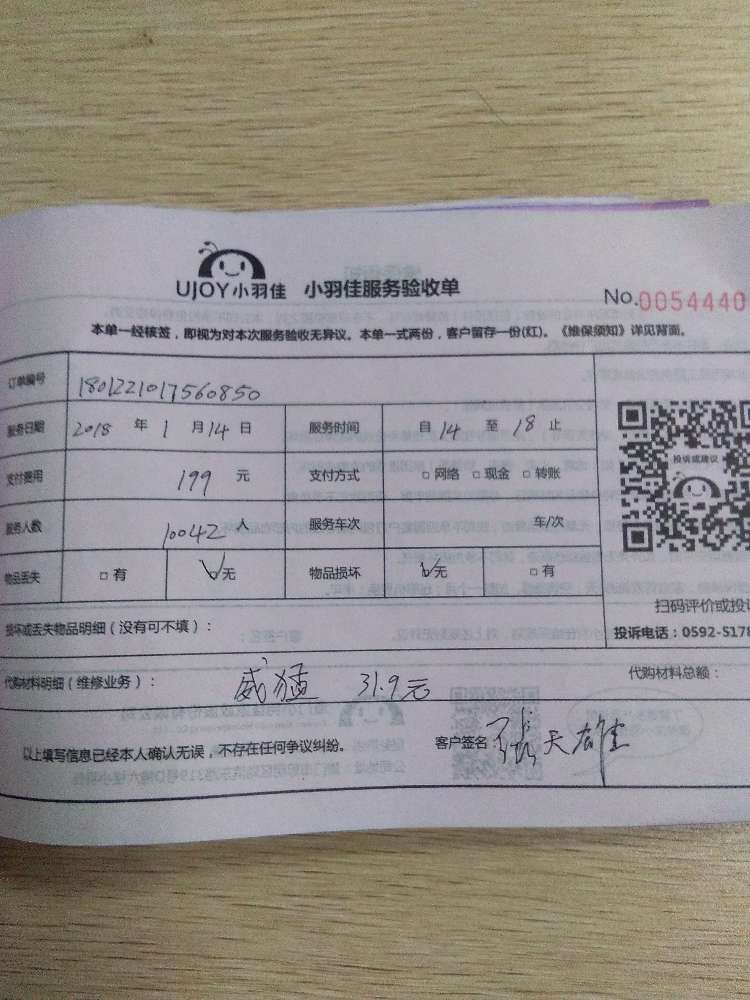 UJOY小羽佳 小羽佳服务验收单
No.0054440
本单一经核签，即视为对本次服务验收无异议。本单一式两份，客户留存一份(红)。《维保须知》详见背面。
订单编号 1801221017560850
服务日期 2018 年 1 月 14 日 服务时间 自 14 至 18 止
支付费用 199 元 支付方式 □网络 □现金 □转账
投诉或建议
服务人数 10042 人 服务车次 车/次
物品丢失 □有 □无 物品损坏 □无 □有
扫码评价或投诉
损坏或丢失物品明细（没有可不填）：
投诉电话：0592-5178
代购材料明细（维修业务）： 威猛 31.9元 代购材料总额：
以上填写信息已经本人确认无误，不存在任何争议纠纷。 客户签名：张天雄